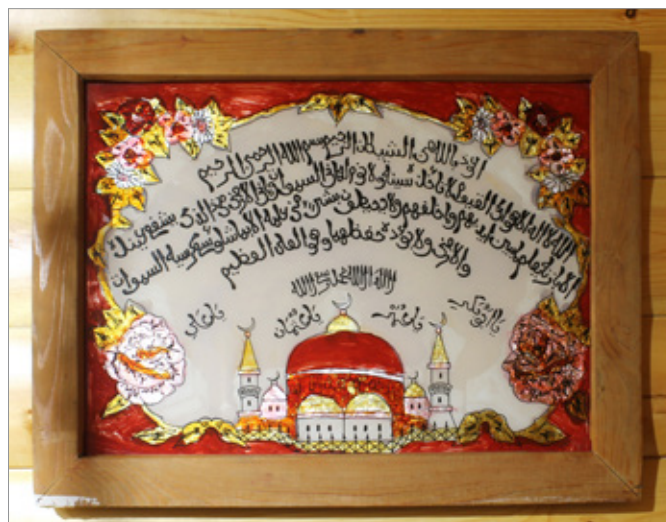 اعوذ بالله من الشيطان الرجيم بسم الله الرحمن الرحيم
الله لا اله الا هو الحي القيوم لا تاخذه سنة ولا نوم له ما في السموات وما في الارض من ذا الذي يشفع عنده
الا باذنه يعلم ما بين ايديهم وما خلفهم ولا يحيطون بشئ من علمه الا بما شاء وسع كرسيه السموات
والارض ولا يؤده حفظهما وهو العلي العظيم
لا اله الا الله محمد رسول الله
يا ابو بكر يا عمر يا عثمان يا علي